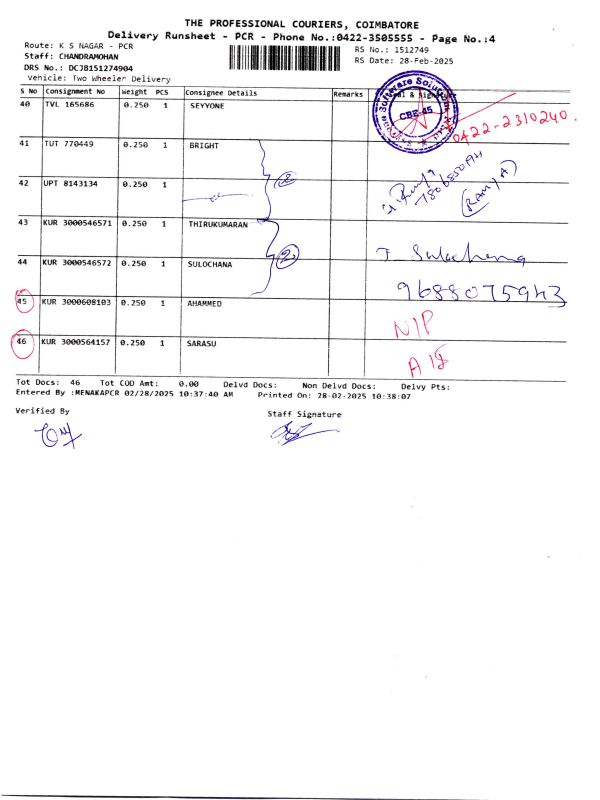 THE PROFESSIONAL COURIERS, COIMBATORE
Delivery Runsheet - PCR - Phone No.:0422-3505555 - Page No.:4
Route: K S NAGAR - PCR
RS No.: 1512749
Staff: CHANDRAMOHAN
RS Date: 28-Feb-2025
DRS No.: DCJB151274904
Vehicle: Two Wheeler Delivery
S No Consignment No Weight PCS Consignee Details Remarks Seal & Signature
40 TVL 165686 0.250 1 SEYYONE
Software Solution
CBE-45
0422-2310240.
41 TUT 770449 0.250 1 BRIGHT
2
42 UPT 8143134 0.250 1
(RAMYA)
43 KUR 3000546571 0.250 1 THIRUKUMARAN
2
44 KUR 3000546572 0.250 1 SULOCHANA
T. Sulochana
9688075943
45 KUR 3000608103 0.250 1 AHAMMED
N/P
46 KUR 3000564157 0.250 1 SARASU
Tot Docs: 46 Tot COD Amt: 0.00 Delvd Docs: Non Delvd Docs: Delvy Pts:
Entered By :MENAKAPCR 02/28/2025 10:37:40 AM Printed On: 28-02-2025 10:38:07
Verified By
Staff Signature